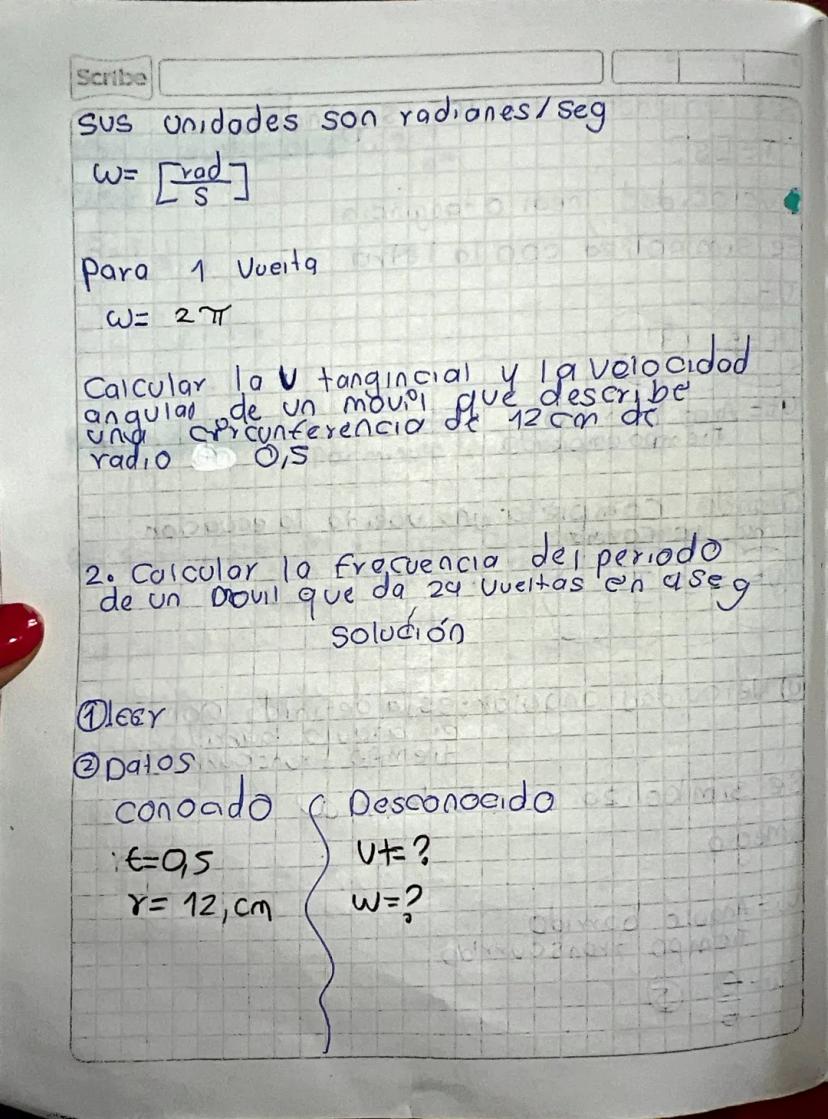 Scribe
Sus unidades son radianes/seg
ω= [rad/s]
Para 1 Vuelta
ω= 2π
Calcular la V tangincial y la velocidad
angular de un movil que describe
una circunferencia de 12 cm de
radio 0,5
2. Calcular la frecuencia del periodo
de un movil que da 24 vueltas en a seg
solución
① leer
② Datos
conocado Desconocido
t=0,5 Vt=?
r= 12, cm w=?